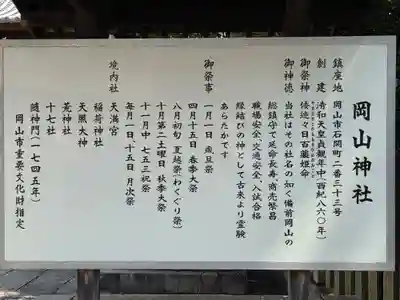 岡山神社
鎮座地 岡山市石関町二番三十三号
創建 清和天皇貞観年中(西紀八六〇年)
御祭神 倭迹々日百襲姫命
御神徳 当社はその社名の如く備前岡山の
総鎮守で延命長寿、商売繁昌
職場安全、交通安全、入試合格
縁結びの神として古来より霊験
あらたかです
御祭事 一月一日 歳旦祭
四月十五日 春季大祭
八月初旬 夏越祭(わくぐり祭)
十月第二土曜日 秋季大祭
十一月中 七五三祝祭
毎月一日、十五日 月次祭
境内社 天満宮
稲荷神社
天照大神
荒神社
十七社
随神門(一七四五年)
岡山市重要文化財指定